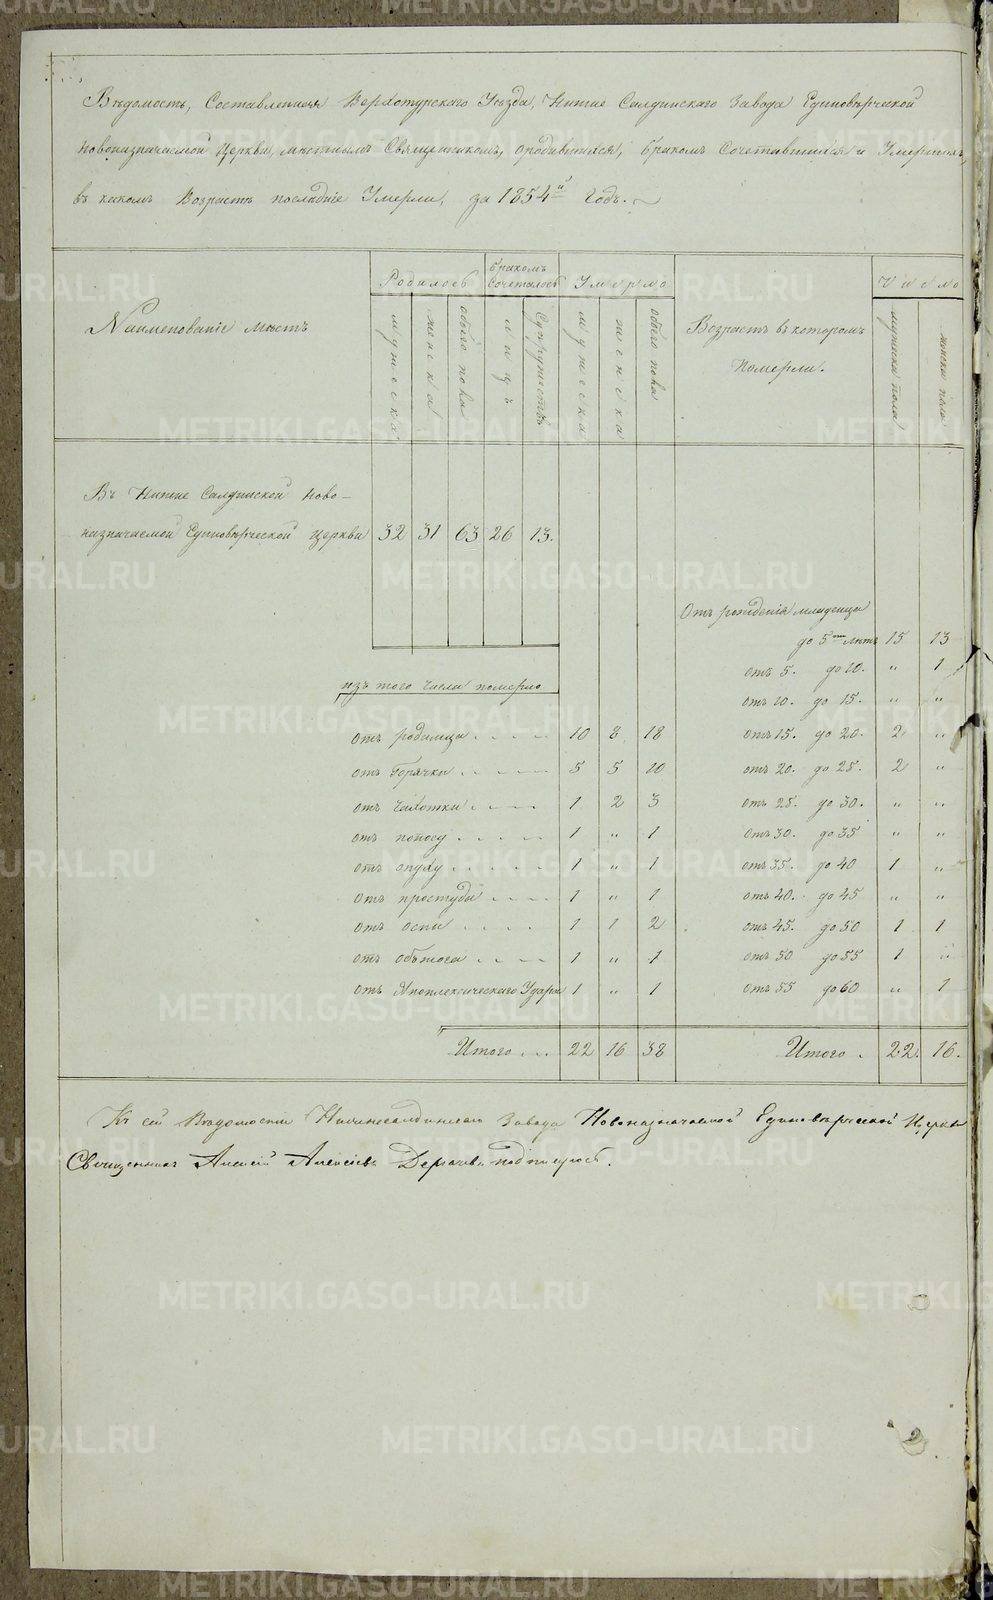 Вѣдомость, Составленная Верхотурскаго Уѣзда, Нижне Салдинскаго Завода Единовѣрческой
новоназначаемой Церкви, мѣстнымъ Священникомъ, о родившихся, бракомъ Сочетавшихся и Умершихъ,
въ какомъ Возрастѣ послѣдніе Умерли, за 1854й Годъ.
Наименованіе мѣстъ
Родилось
бракомъ Сочеталось
Умерло
Возрастъ въ которомъ
Померли.
Число
мужеска
женска
обоего пола
лицъ
Супружествъ
мужеска
женска
обоего пола
мужеска пола
женска пола
Въ Нижне Салдинской ново-
назначаемой Единовѣрческой церкви 32 31 63 26 13.
Отъ рожденія младенца
до 5ти лѣтъ 15 13
отъ 5. до 10. " 1
изъ того числа померло
отъ 10. до 15. " "
отъ родимца 10 8 18 отъ 15. до 20. 2 "
отъ Горячки 5 5 10 отъ 20. до 25. 2 "
отъ Чахотки 1 2 3 отъ 25. до 30. " "
отъ поносу 1 " 1 отъ 30. до 35 " "
отъ опуху 1 " 1 отъ 35. до 40 1 "
отъ простуды 1 " 1 отъ 40. до 45 " "
отъ оспы 1 1 2 отъ 45. до 50 1 1
отъ 1 " 1 отъ 50 до 55 1 "
отъ Апоплексическаго Удара 1 " 1 отъ 55 до 60 " 1
Итого 22 16 38 Итого 22. 16.
Къ сей Вѣдомости Нижнесалдинскаго Завода Новоназначаемой Единовѣрческой Церкви
Священникъ Алексѣй Алексѣевъ подписуюсь.
2
METRIKI.GASO-URAL.RU